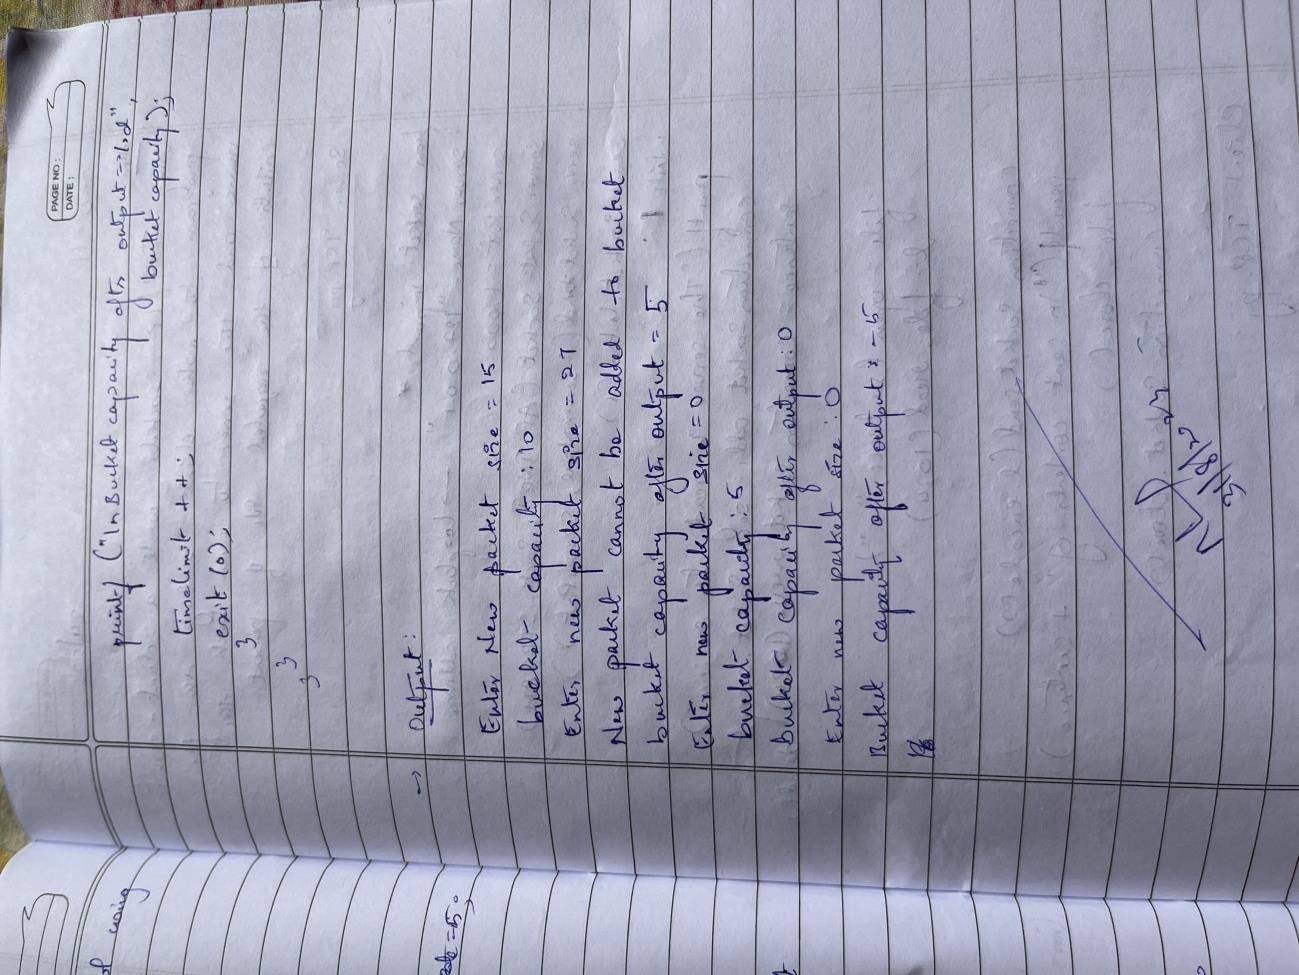 PAGE NO:
DATE:
printf ("\nBucket capacity after output = %d",
bucket capacity);
timelimit ++;
exit (0);
}
}
}
→ Output:
Enter New packet size = 15
bucket capacity : 10
Enter new packet size = 27
New packet cannot be added to bucket
bucket capacity after output = 5
Enter new packet size = 0
bucket capacity : 5
bucket capacity after output : 0
Enter new packet size : 0
Bucket capacity after output : -5
of using
= 5;